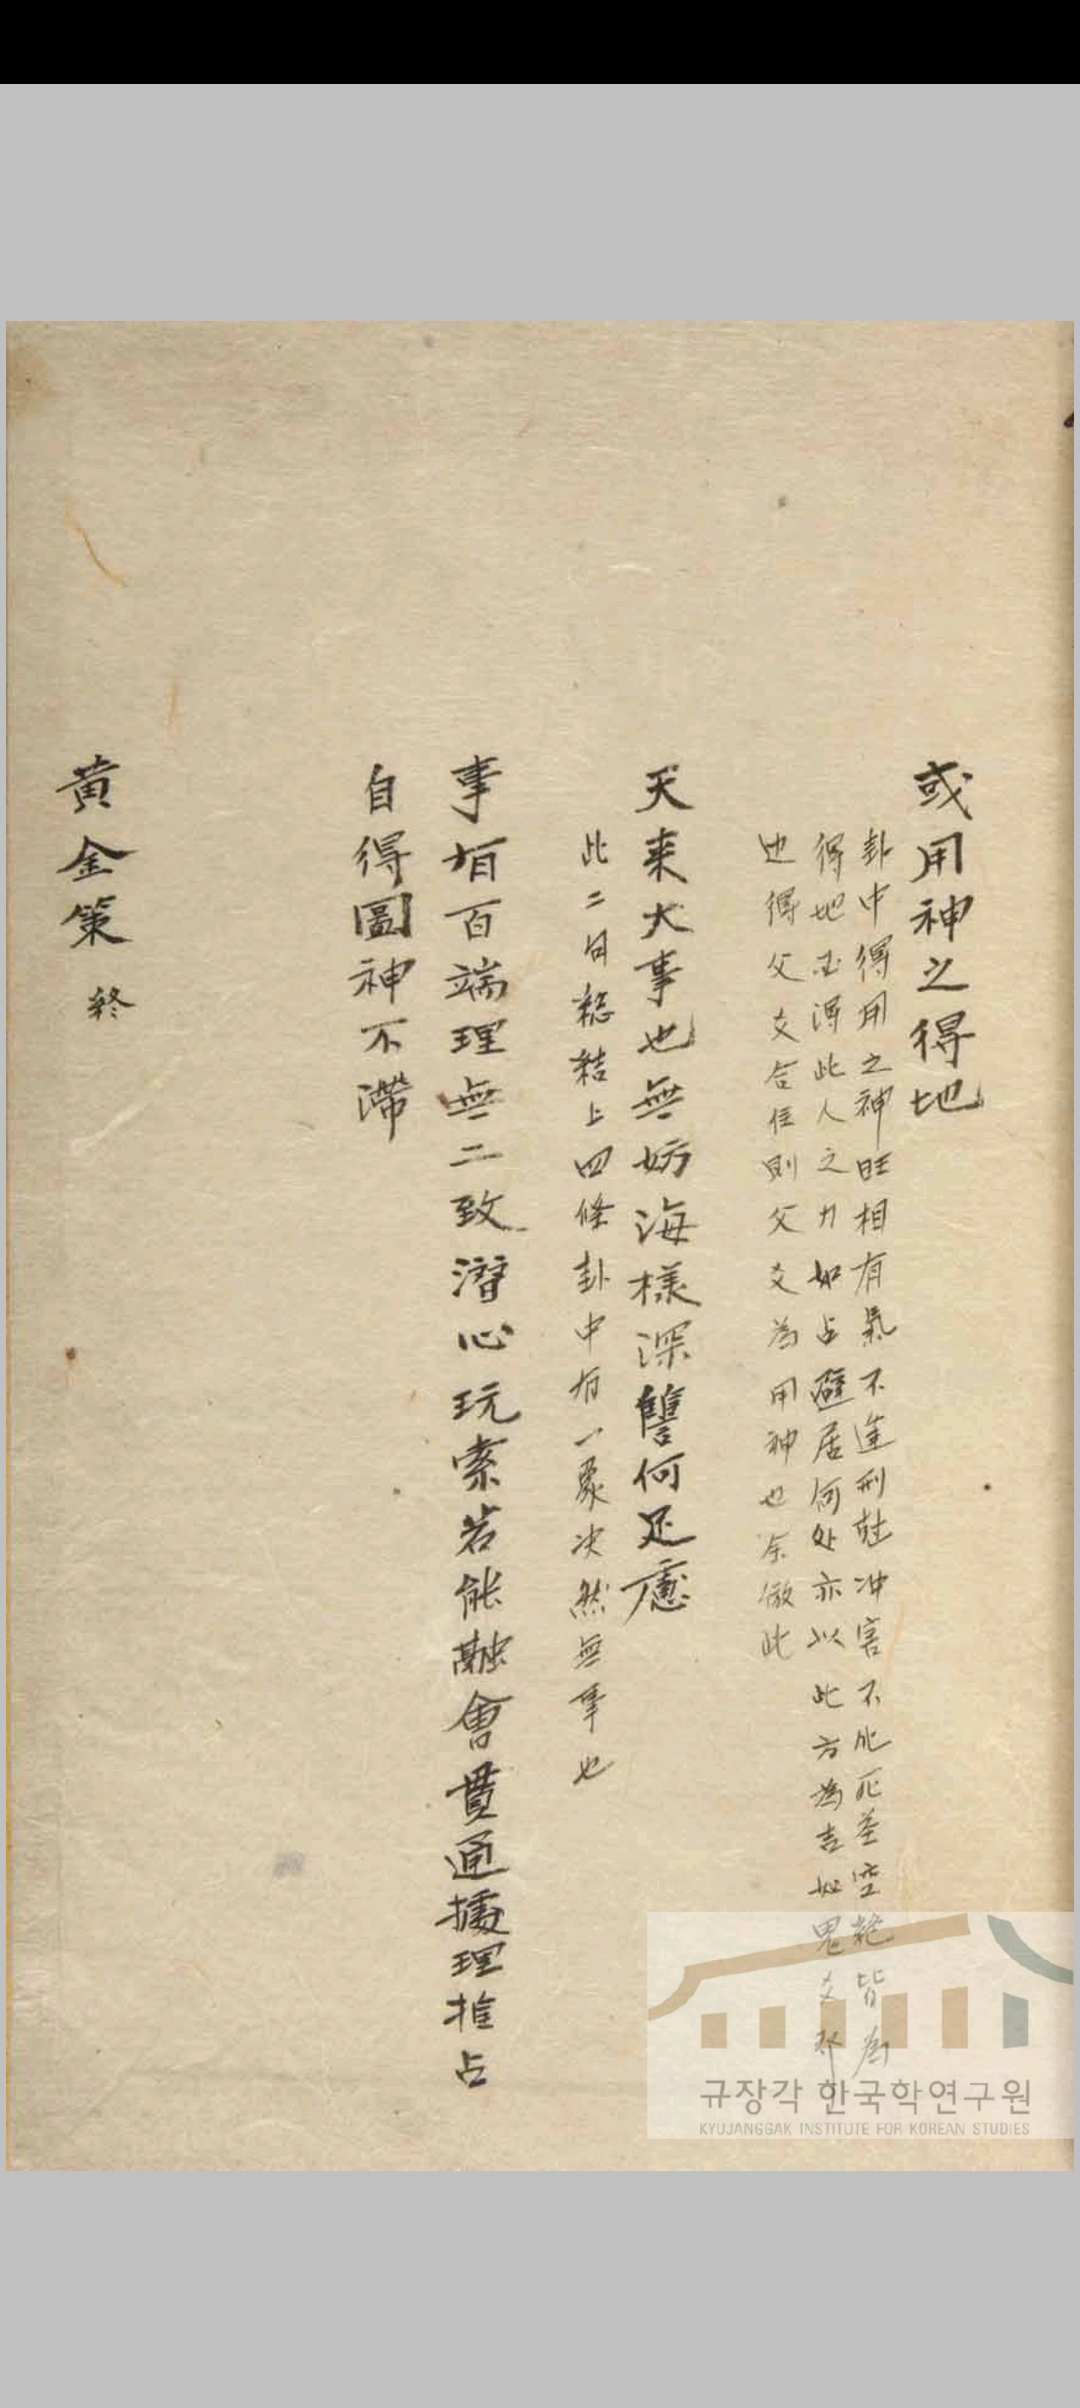 或用神之得地
卦中得用之神旺相有氣不逢刑尅冲害不化死墓空絶皆為
得地必得此人之力如占避居何处亦以此方為吉如鬼爻
也得父爻合住則父爻為用神也余倣此
天来大事也無妨海樣深讐何足慮
此二句総結上四條卦中有一象决然無事也
事有百端理無二致潛心玩索若能融會貫通據理推占
自得圓神不滯
黄金策 終
규장각 한국학연구원
KYUJANGGAK INSTITUTE FOR KOREAN STUDIES